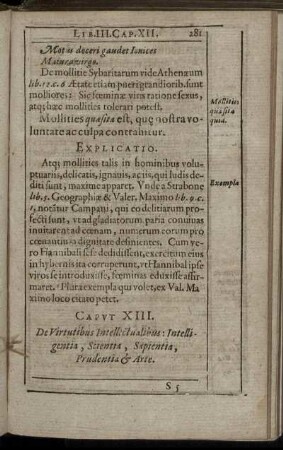 LIB.III.CAP.XII. 281
Motus doceri gaudet Ionicos
Matura virgo.
De mollitie Sybaritarum vide Athenæum
lib. 12. c. 6 Ætate etiam pueri grandioribus sunt
molliores: Sic fœminæ viris ratione sexus,
atq; hæc mollities tolerari potest.
Mollities quæsita est, quę nostra vo
luntate ac culpa contrahitur.
Mollities
quæsita
quid.
EXPLICATIO.
Atq; mollities talis in hominibus volu-
ptuariis, delicatis, ignavis, ac iis, qui ludis de-
diti sunt, maxime apparet. Vnde a Strabone
Exempla
lib. 5. Geographiæ & Valer. Maximo lib. 9. c.
1. notātur Campani, qui eo delitiarum pro-
fecti sunt, vt ad gladiatorum paria convivas
invitarent ad cœnam, numerum eorum pro
cœnantium dignitate definientes. Cum ve-
ro Hannibali sese dedidissent, exercitum eius
in hybernis ita corruperunt, vt Hannibal ipse
viros se introduxisse, fœminas eduxisse affir-
maret. Plura exempla qui volet, ex Val. Ma
ximo loco citato petet.
CAPVT XIII.
De Virtutibus Intellectualibus: Intelli-
gentia, Scientia, Sapientia,
Prudentia & Arte.
S 5